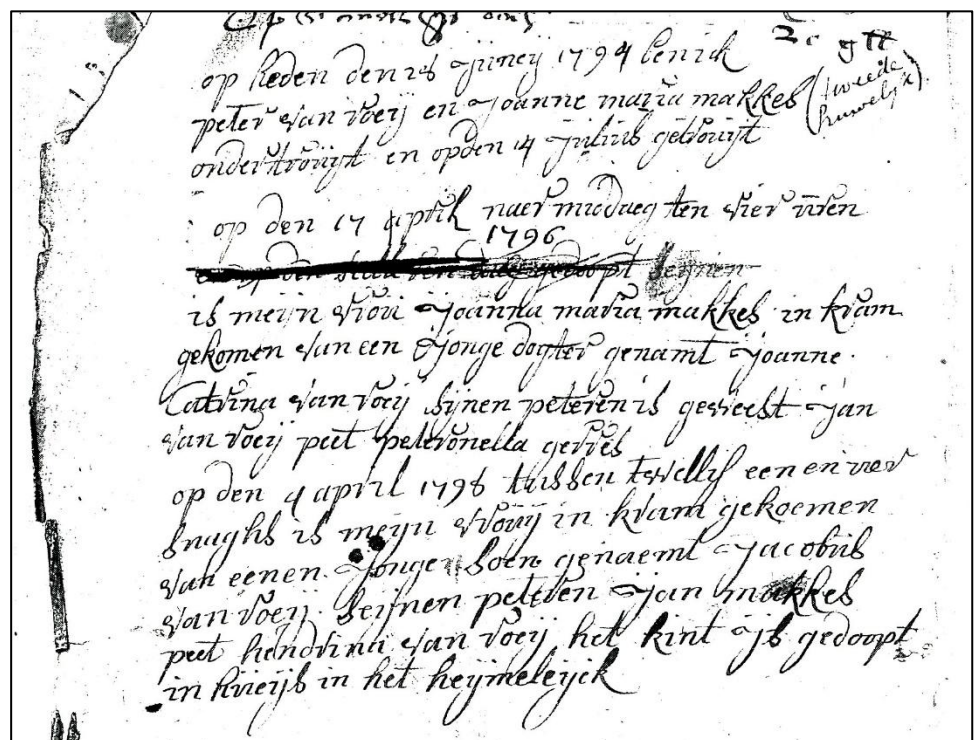 op heden den 28 Juney 1794 ben ick
peter van roeij en Joanne maria makkes (tweede huwelijk)
ondertrouijt en op den 14 Julius getrouijt
op den 17 april naer middaeg ten vier uren
1796
is meijn vrou Joanna maria makkes in kram
gekomen van een Jonge dogter genamt Joanne
Catrina van roeij sijnen peteren is geweest Jan
van roeij peet petronella
op den 4 april 1798 tussen twellif een en uer
snaghs is meijn vrouij in kram gekoemen
van eenen Jonger soen genaemt Jacobus
van roeij seijnen peteren Jan makkes
peet hendrina van roeij het kint is gedoopt
in in het heijmeleijck